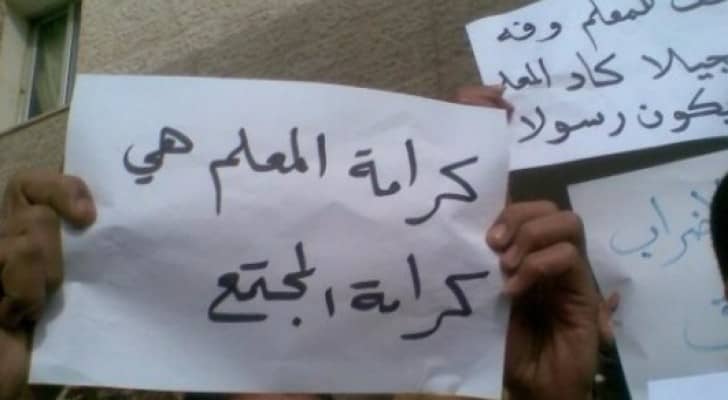 كرامة المعلم هي
كرامة المجتمع
للمعلم وفه
كاد المعل
يكون رسولا